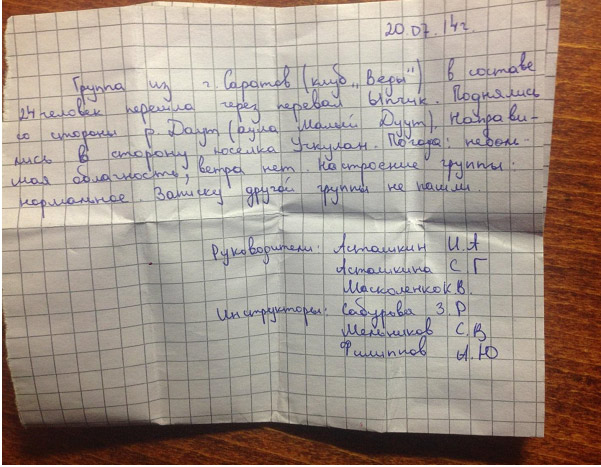 20.07.14г.
Группа из г. Саратов (клуб „Веды") в составе
24 человек перешла через перевал Ыпчик. Поднялись
со стороны р. Даут (аула Малый Дуут). Направи-
лись в сторону поселка Учкулан. Погода: неболь-
шая облачность, ветра нет. Настроение группы
нормальное. Записку другой группы не нашли.
Руководители: Асташкин И.А
Асташкина С Г
Масколенко К В.
Инструкторы: Сабурова З. Р
Мельников С.В
Филиппов А.Ю